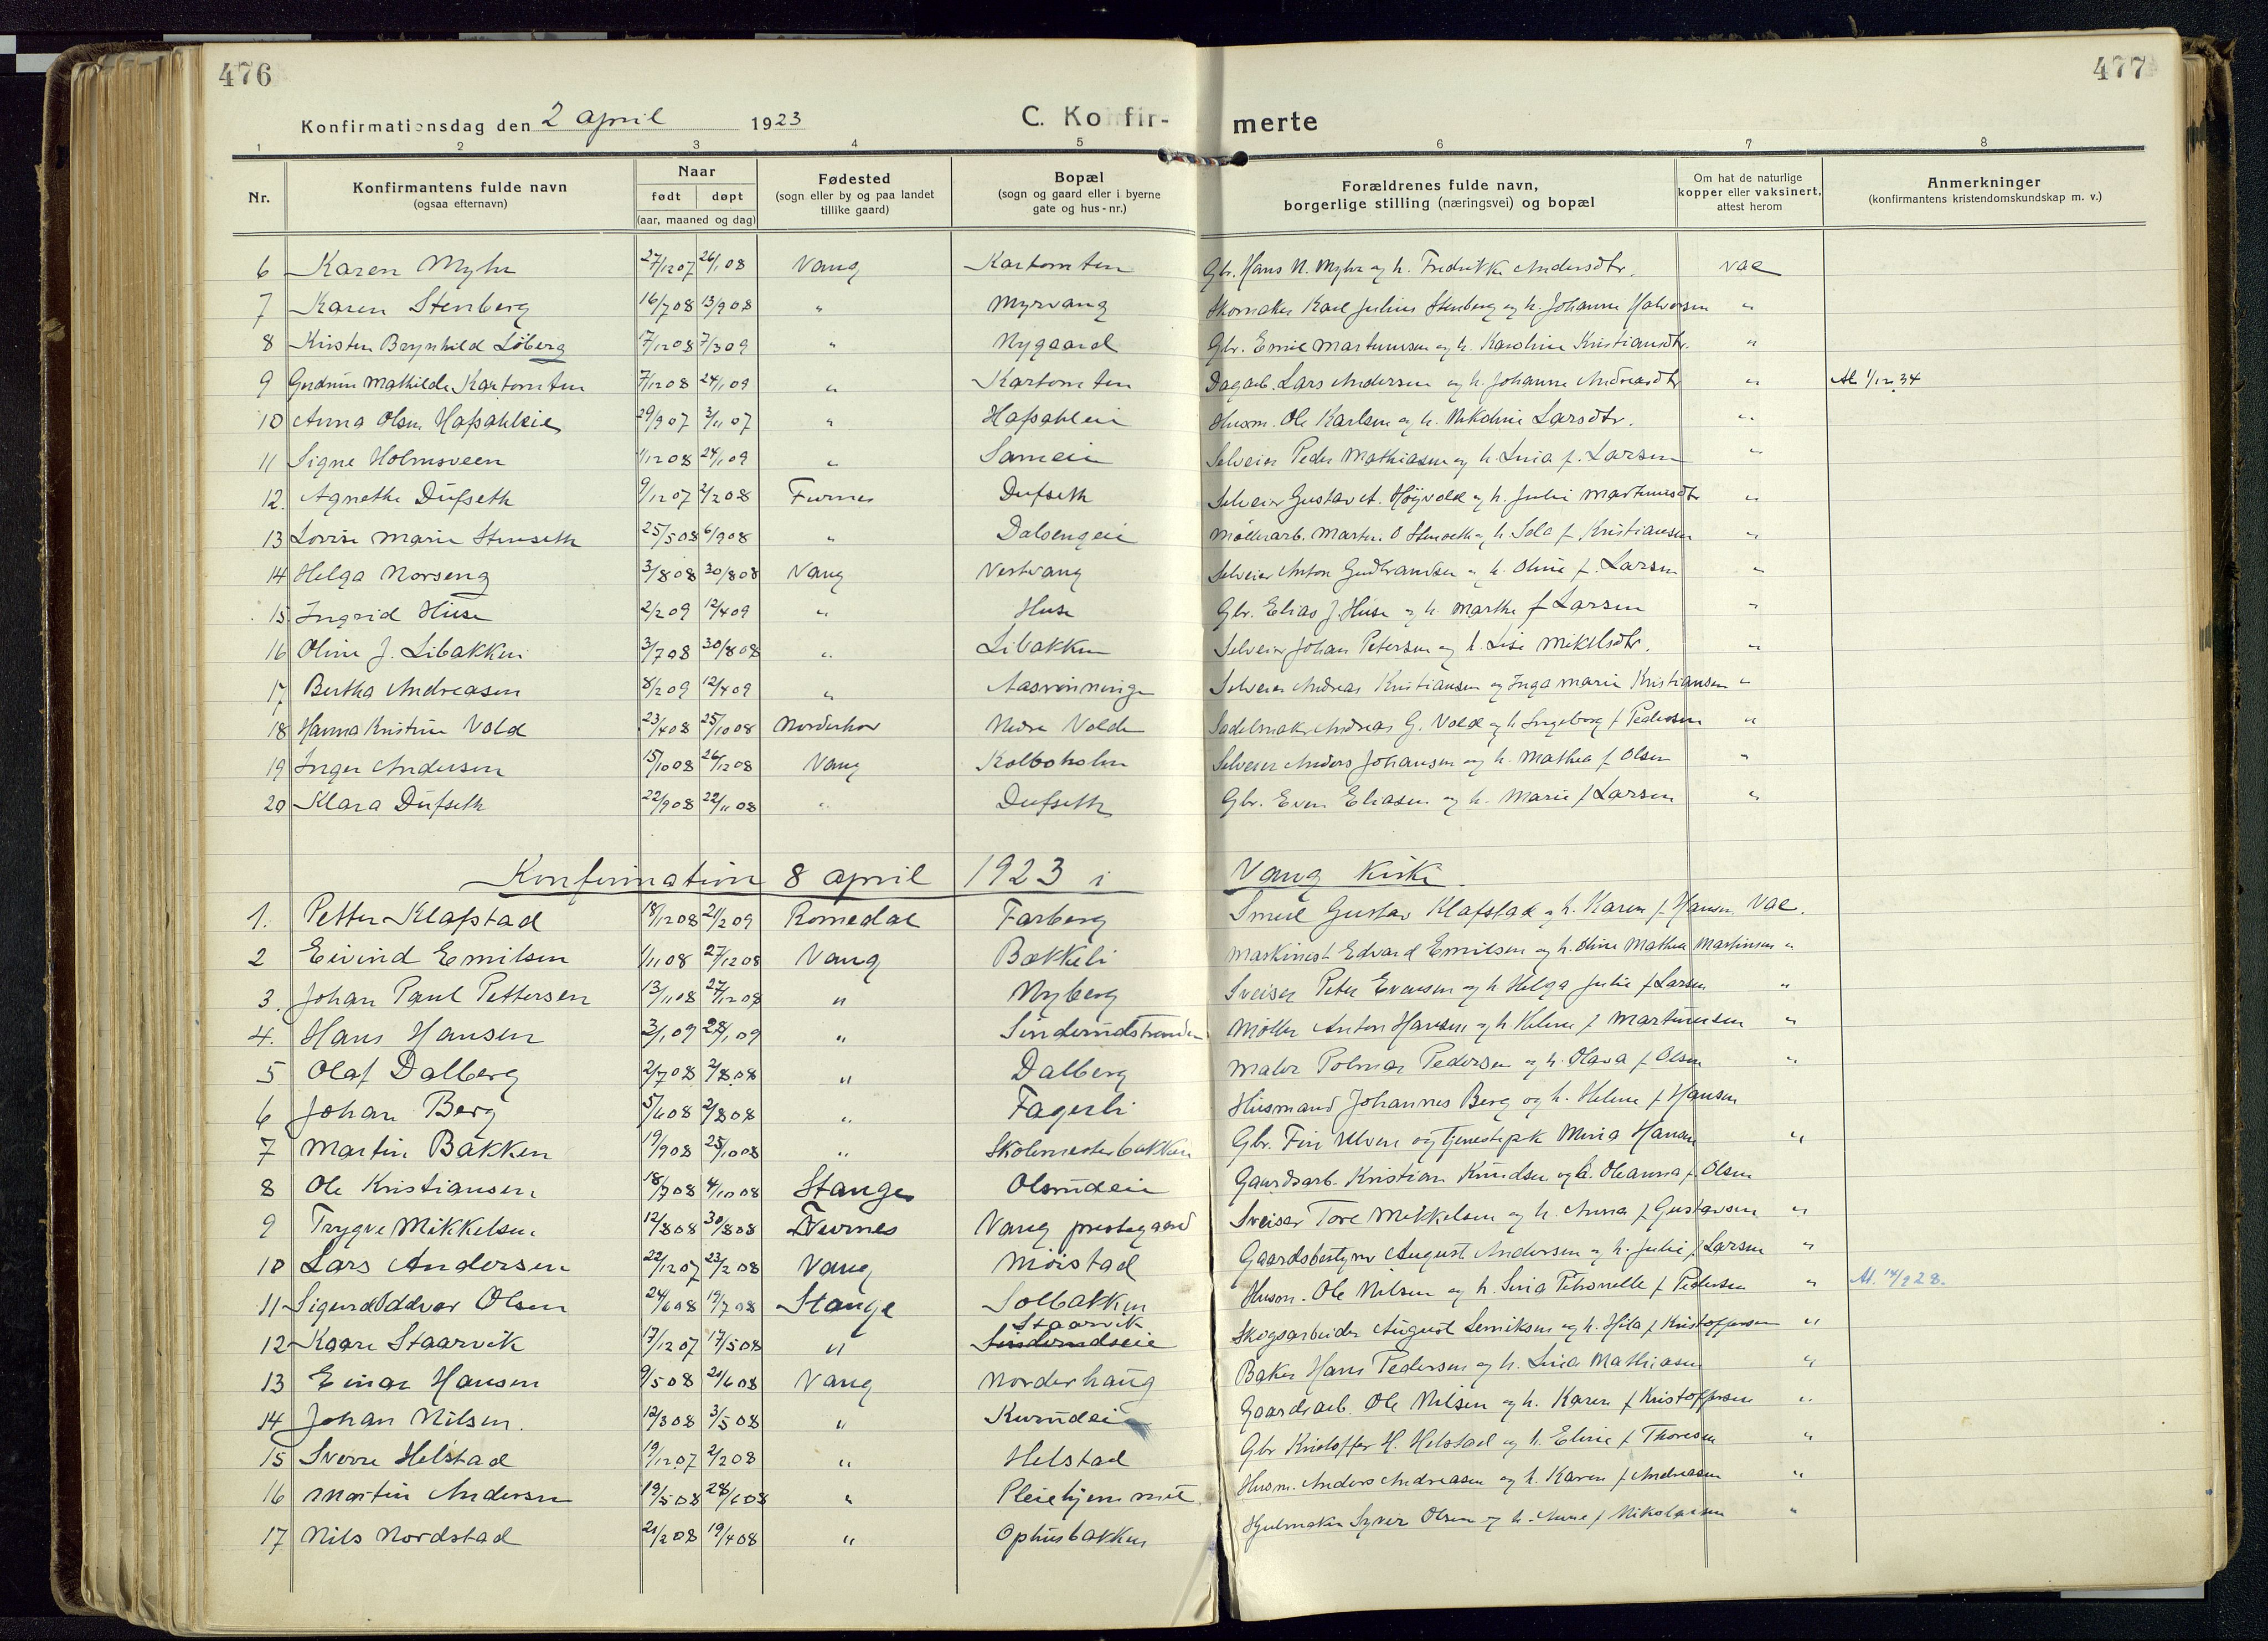 476
477
Konfirmationsdag den 2 april 1923
C. Konfir- merte
1 2 3 4 5 6 7 8
Nr. Konfirmantens fulde navn (ogsaa efternavn) Naar født døpt (aar, maaned og dag) Fødested (sogn eller by og paa landet tillike gaard) Bopæl (sogn og gaard eller i byerne gate og hus-nr.) Forældrenes fulde navn, borgerlige stilling (næringsvei) og bopæl Om hat de naturlige kopper eller vaksinert, attest herom Anmerkninger (konfirmantens kristendomskundskap m. v.)
6 Karen Myhr 27/12 07 26/1 08 Vang Kartomten Gbr. Hans N. Myhr og h. Fredrikke Andersdtr. vac
7 Karen Stenberg 16/7 08 13/9 08 " Myrvang Skomaker Karl Julius Stenberg og h. Johanne Halvorsen "
8 Kristen Brynhild Löberg 17/12 08 7/3 09 " Nygaard Gbr. Emil Martinussen og h. Karoline Kristiansdtr. "
9 Gudrun Mathilde Kartomten 7/12 08 24/1 09 " Kartomten Dagarb. Lars Andersen og h. Johanne Andreasdtr " At. 1/12 34
10 Anna Olsen Hafsahleie 29/9 07 3/11 07 " Hafsahleie Husm. Ole Karlsen og h. Nikoline Larsdtr. "
11 Signe Holmsveen 1/12 08 24/1 09 " Sameie Selveier Peder Mathiasen og h. Lina f. Larsen "
12. Agnethe Dufseth 9/12 07 2/2 08 Furnes Dufseth Selveier Gustav A. Höjvold og h. Julie Martinusdtr "
13 Lovise Marie Stenseth 25/5 08 6/9 08 " Dalsengeie Möllerarb. Martin O Stenseth og h. Sela f. Kristiansen "
14 Helga Norseng 3/8 08 30/8 08 Vang Vestvang Selveier Anton Gudbrandsen og h. Oline f. Larsen "
15 Ingrid Huse 2/2 09 12/4 09 " Huse Gbr. Elias J. Huse og h. Marthe f Larsen "
16 Oline J. Libakken 3/7 08 30/8 08 " Libakken Selveier Johan Petersen og h. Lise Mikelsdtr. "
17 Bertha Andreasen 8/2 09 12/4 09 " Aasvinninge Selveier Andreas Kristiansen og Inga Marie Kristiansen "
18 Hanna Kristine Vold 23/4 08 25/10 08 Norderhov Nedre Volde Sadelmaker Andreas G. Vold og h. Ingeborg f Pedersen "
19 Inger Andersen 15/10 08 26/12 08 Vang Kolboholm Selveier Anders Johansen og h. Mathea f Olsen "
20 Klara Dufseth 22/9 08 22/11 08 " Dufseth Gbr. Even Eliasen og h. Marie f Larsen "
Konfirmation 8 april 1923 i Vang kirke.
1. Petter Klafstad 18/12 08 21/2 09 Romedal Farberg Smed Gustav Klafstad og h. Karen f. Hansen Vac.
2 Eivind Emilsen 1/11 08 27/12 08 Vang Bækkeli Maskinist Edvard Emilsen og h. Oline Mathea Martinsen "
3. Johan Paul Pettersen 13/11 08 27/12 08 " Nyberg Sveiser Peter Evensen og h Helga Julie f Larsen "
4. Hans Hansen 3/1 09 28/1 09 " Sinderudstranden Möller Anton Hansen og h Helene f Martinusen "
5 Olaf Dalberg 2/7 08 2/8 08 " Dalberg Maler Polmar Pedersen og h. Olava f Olsen "
6 Johan Berg 5/6 08 2/8 08 " Fagerli Husmand Johannes Berg og h. Helene f Hansen
7 Martin Bakken 19/9 08 25/10 08 " Skolemesterbakken Gbr. Fin Ulven og tjenestepk Mina Hansen "
8 Ole Kristiansen 18/7 08 4/10 08 Stange Olsrudeie Gaardsarb. Kristian Knudsen og h. Oleanna f. Olsen
9 Trygve Mikkelsen 12/8 08 30/8 08 Furnes Vang prestegaard Sveiser Tore Mikkelsen og h. Anna f Gustavsen "
10 Lars Andersen 22/12 07 23/2 08 Vang Möistad Gaardsbestyrer August Andersen og h. Julie f Larsen "
11 Sigurd Oddvar Olsen 24/6 08 19/7 08 Stange Solbakken Husm. Ole Nilsen og h. Lina Petronelle f Pedersen " At. 14/2 28.
12 Kaare Staarvik 17/12 07 17/5 08 " Staarvik Sinderudseie Skogsarbeider August Henriksen og h. Hila f Kristoffersen "
13 Einar Hansen 9/5 08 21/6 08 Vang Norderhaug Baker Hans Pedersen og h. Lina Mathiasen "
14 Johan Nilsen. 12/3 08 3/5 08 " Kurudeie Gaardsarb. Ole Nilsen og h. Karen f Kristoffersen "
15 Sverre Helstad 19/12 07 2/2 08 " Helstad Gbr Kristoffer H. Helstad og h. Eline f Thoresen "
16 Martin Andersen 19/5 08 28/6 08 " Pleiehjemmet Husm. Anders Andreasen og h. Karen f Andreasen "
17 Nils Nordstad 21/2 08 19/4 08 " Ophusbakken Hjulmaker Syver Olsen og h. Anne f Nikolaisen "